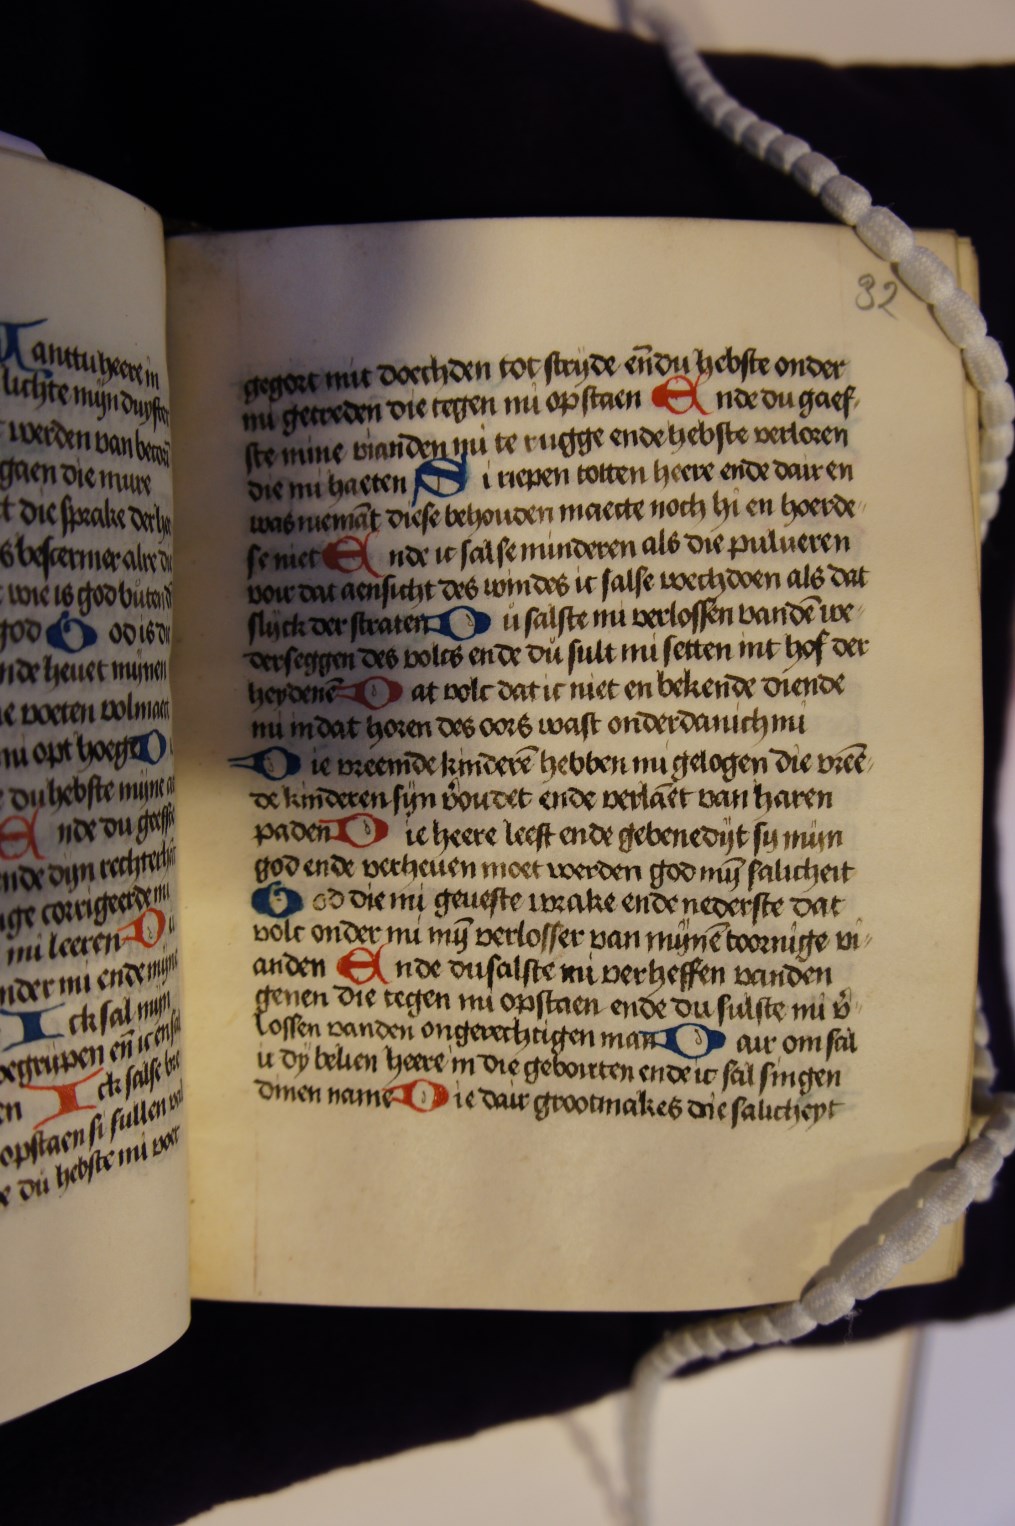 anttu heere in
lichte mijn duyster
werden van becorī
gaen die mure
t die sprake der he
s bescermer alre di
wie is god butend
god God is di
nde heuet mijnen
e voeten volmaect
mi opt hoege D
e du hebste mijne
Ende du geeffs
nde dijn rechterhā
ige corrigeerde mi
mi leeren Du
nder mi ende mijne
Ick sal mijn
begrijpen en̄ ic en sal
en Ick salse bre
opstaen si sullen val
e dū hebste mi voer
32
gegort mit doechden tot strijde en̄ du hebste onder
mi getreden die tegen mi opstaen Ende du gaef-
ste mine vianden mi te rugge ende hebste verloren
die mi haeten Si riepen totten heere ende dair en
was niemāt diese behouden maecte noch hi en hoerde-
se niet Ende ic sal se minderen als die pulueren
voir dat aensicht des windes ic salse wechdoen als dat
slijck der straten Dū salste mi verlossen vandē we-
derseggen des volcs ende dū sult mi setten int hof der
heydenē Dat volc dat ic niet en bekende diende
mi in dat horen des oors wast onderdanich mi
Die vreemde kinderē hebben mi gelogen die vreē-
de kinderen sijn v̄oudet ende verlaēt van haren
paden Die heere leeft ende gebenedijt sy mijn
god ende verheuen moet werden god mij̄ salicheit
God die mi geueste wrake ende nederste dat
volc onder mi mij̄ verlosser van mijnē toornige vi-
anden Ende du salste mi verheffen vanden
genen die tegen mi opstaen ende du sulste mi v̄-
lossen vanden ongerechtigen man Dair om sal
ic dy belien heere in die geboirten ende ic sal singen
dinen name Die dair grootmakes die salicheyt